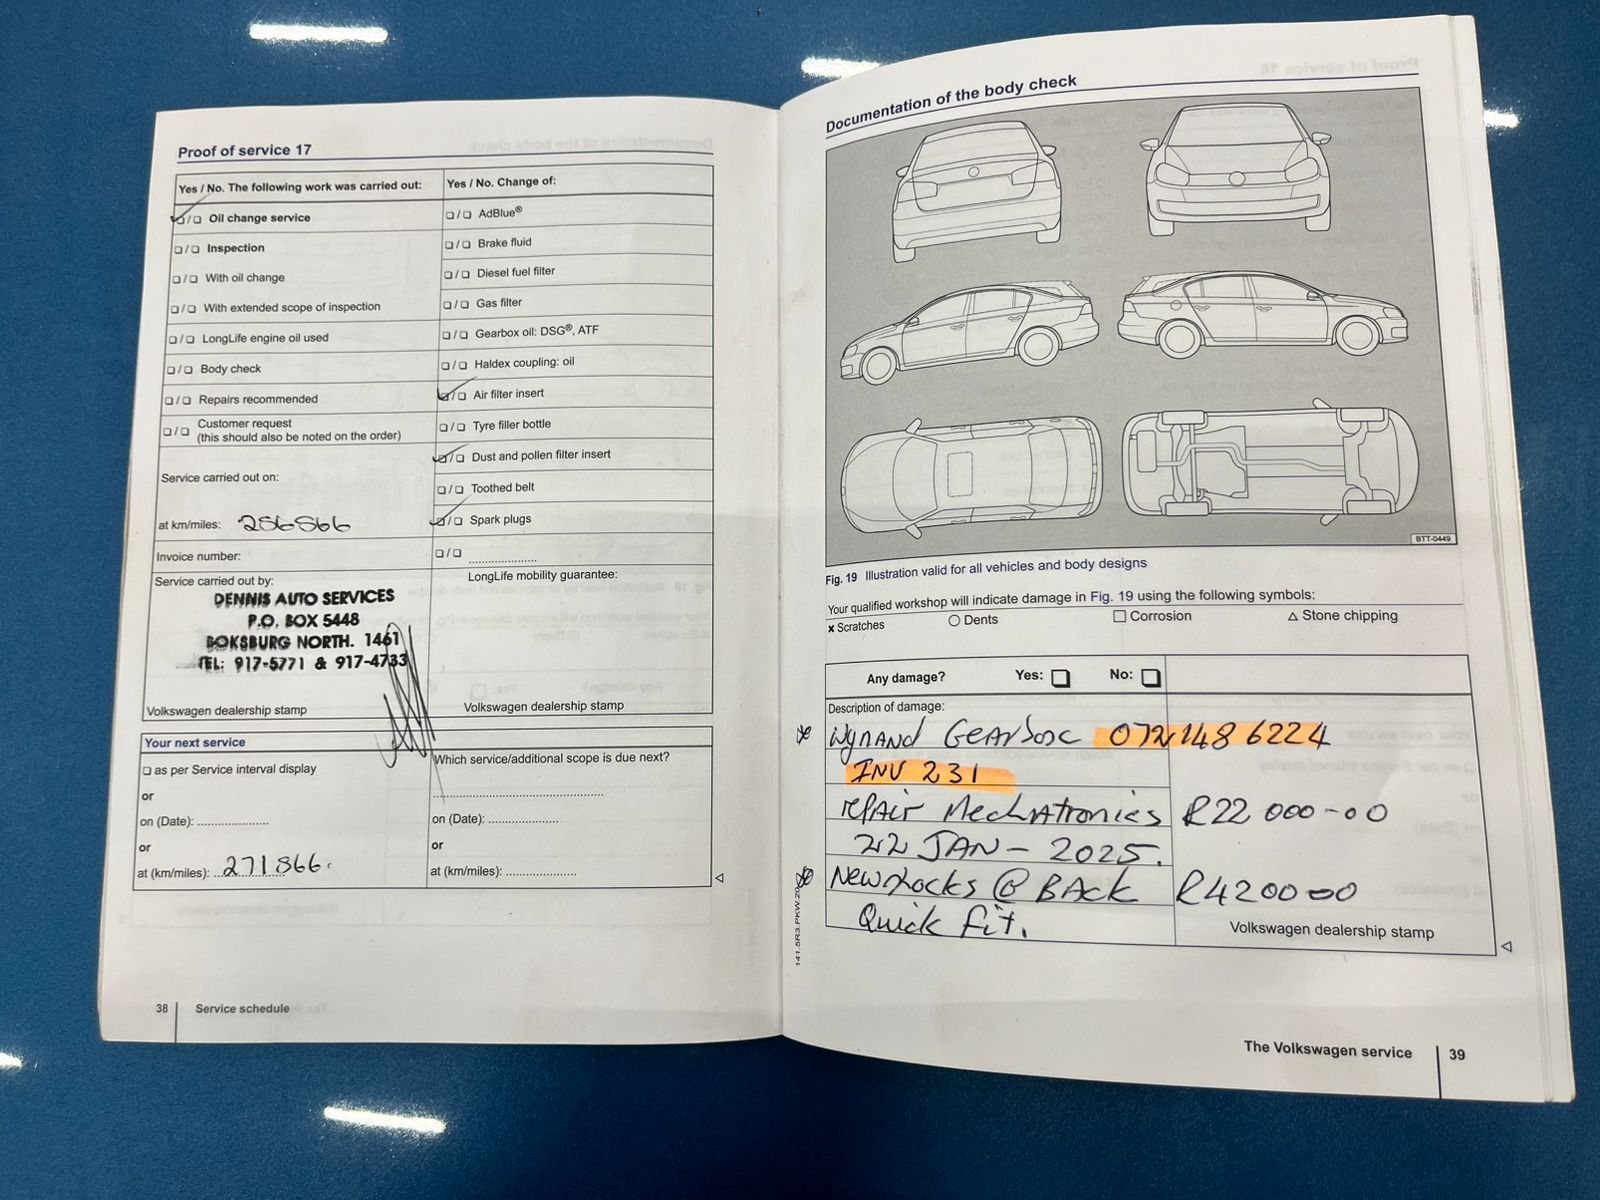 Proof of service 17
Yes / No. The following work was carried out:
☑/❏ Oil change service
❏/❏ Inspection
❏/❏ With oil change
❏/❏ With extended scope of inspection
❏/❏ LongLife engine oil used
❏/❏ Body check
❏/❏ Repairs recommended
❏/❏ Customer request
(this should also be noted on the order)
Service carried out on:
at km/miles: 256866
Invoice number:
Service carried out by:
DENNIS AUTO SERVICES
P.O. BOX 5448
BOKSBURG NORTH. 1461
TEL: 917-5771 & 917-4733
Volkswagen dealership stamp
Yes / No. Change of:
❏/❏ AdBlue®
❏/❏ Brake fluid
❏/❏ Diesel fuel filter
❏/❏ Gas filter
❏/❏ Gearbox oil: DSG®, ATF
❏/❏ Haldex coupling: oil
☑/❏ Air filter insert
❏/❏ Tyre filler bottle
☑/❏ Dust and pollen filter insert
❏/❏ Toothed belt
☑/❏ Spark plugs
❏/❏ ....................
LongLife mobility guarantee:
Volkswagen dealership stamp
Your next service
❏ as per Service interval display
or
on (Date): ....................
or
at (km/miles): 271866.
Which service/additional scope is due next?
on (Date): ....................
or
at (km/miles): ....................
38 Service schedule
Documentation of the body check
BTT-0449
Fig. 19 Illustration valid for all vehicles and body designs
Your qualified workshop will indicate damage in Fig. 19 using the following symbols:
× Scratches ○ Dents □ Corrosion △ Stone chipping
Any damage? Yes: ❏ No: ❏
Description of damage:
Wynand Gearbox 0721486224
INV 231
repair Mechatronics R22 000-00
22 JAN - 2025.
New shocks @ Back R4200-00
Quick fit.
Volkswagen dealership stamp
141.5R3.PKW.20
The Volkswagen service 39